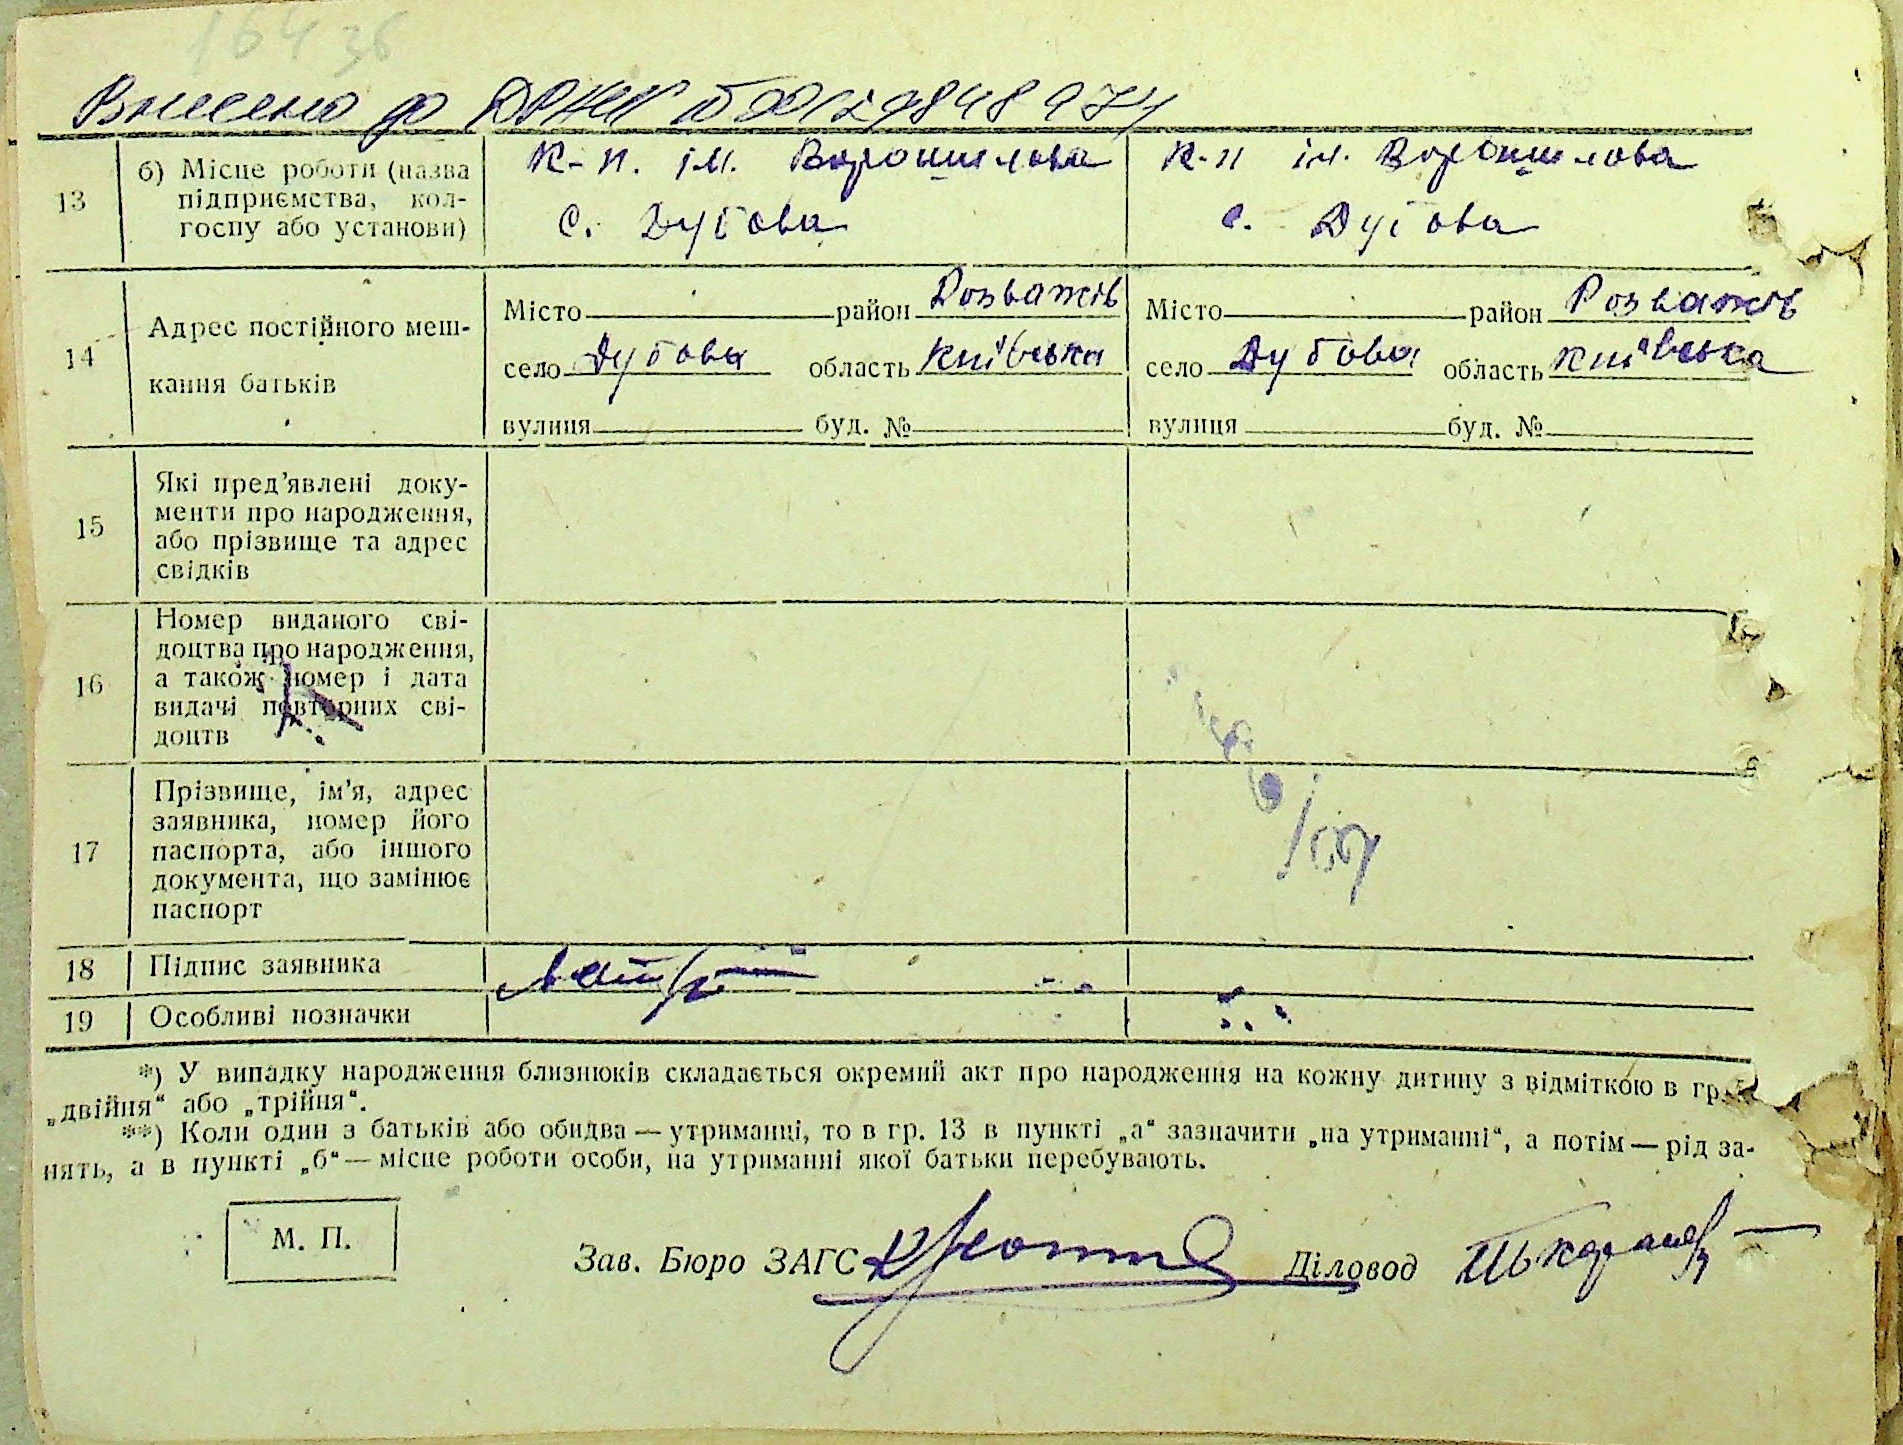 16436
Внесено до ДРАЦС № 00129848974
13 б) Місце роботи (назва підприємства, колгоспу або установи)
к-п. ім. Ворошилова
с. Дубова
к-п ім. Ворошилова
с. Дубова
14 Адрес постійного мешкання батьків
Місто район Розважів
село Дубова область Київська
вулиця буд. №
Місто район Розважів
село Дубова область Київська
вулиця буд. №
15 Які пред’явлені документи про народження, або прізвище та адрес свідків
16 Номер виданого свідоцтва про народження, а також номер і дата видачі повторних свідоцтв
17 Прізвище, ім’я, адрес заявника, номер його паспорта, або іншого документа, що замінює паспорт
18 Підпис заявника
19 Особливі позначки
*) У випадку народження близнюків складається окремий акт про народження на кожну дитину з відміткою в гр.
„двійня“ або „трійня“.
**) Коли один з батьків або обидва — утриманці, то в гр. 13 в пункті „а“ зазначити „на утриманні“, а потім — рід за-
нять, а в пункті „б“ — місце роботи особи, на утриманні якої батьки перебувають.
М. П.
Зав. Бюро ЗАГС
Діловод